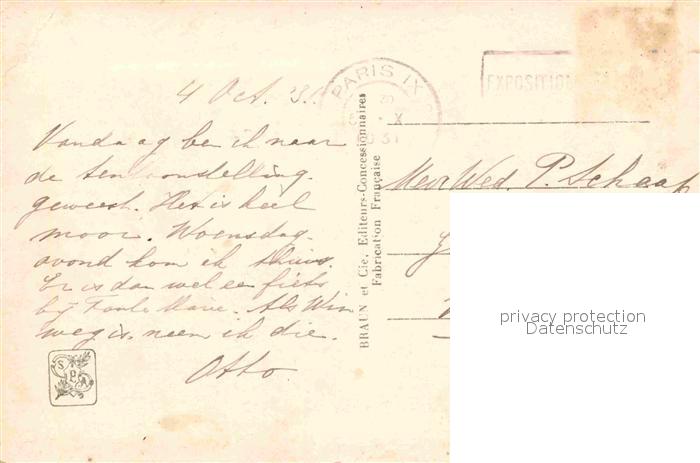 4 Oct. 31.
Vandaag ben ik naar
de tentoonstelling
geweest. Het is heel
mooi. Woensdag
avond kom ik thuis.
Er is dan wel een fiets
bij Tante Marie. Als Wim
weg is, neem ik die.
Otto
S P A
PARIS IX
X
31
EXPOSITION
BRAUN et Cie, Editeurs-Concessionnaires
Fabrication Française
Mevr Wed. P. Schaap
privacy protection
Datenschutz